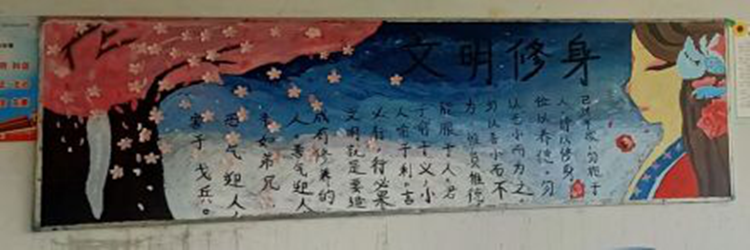 文明修身
己所不欲,勿施于
人,静以修身,
俭以养德。勿
以恶小而为之,
勿以善小而不
为。惟贤惟德,
能服于人。君
子喻于义,小
人喻于利。言
必行,行必果
文明就是要造
成有修养的
人。善气迎人,
亲如弟兄
恶气迎人,
害于戈兵。